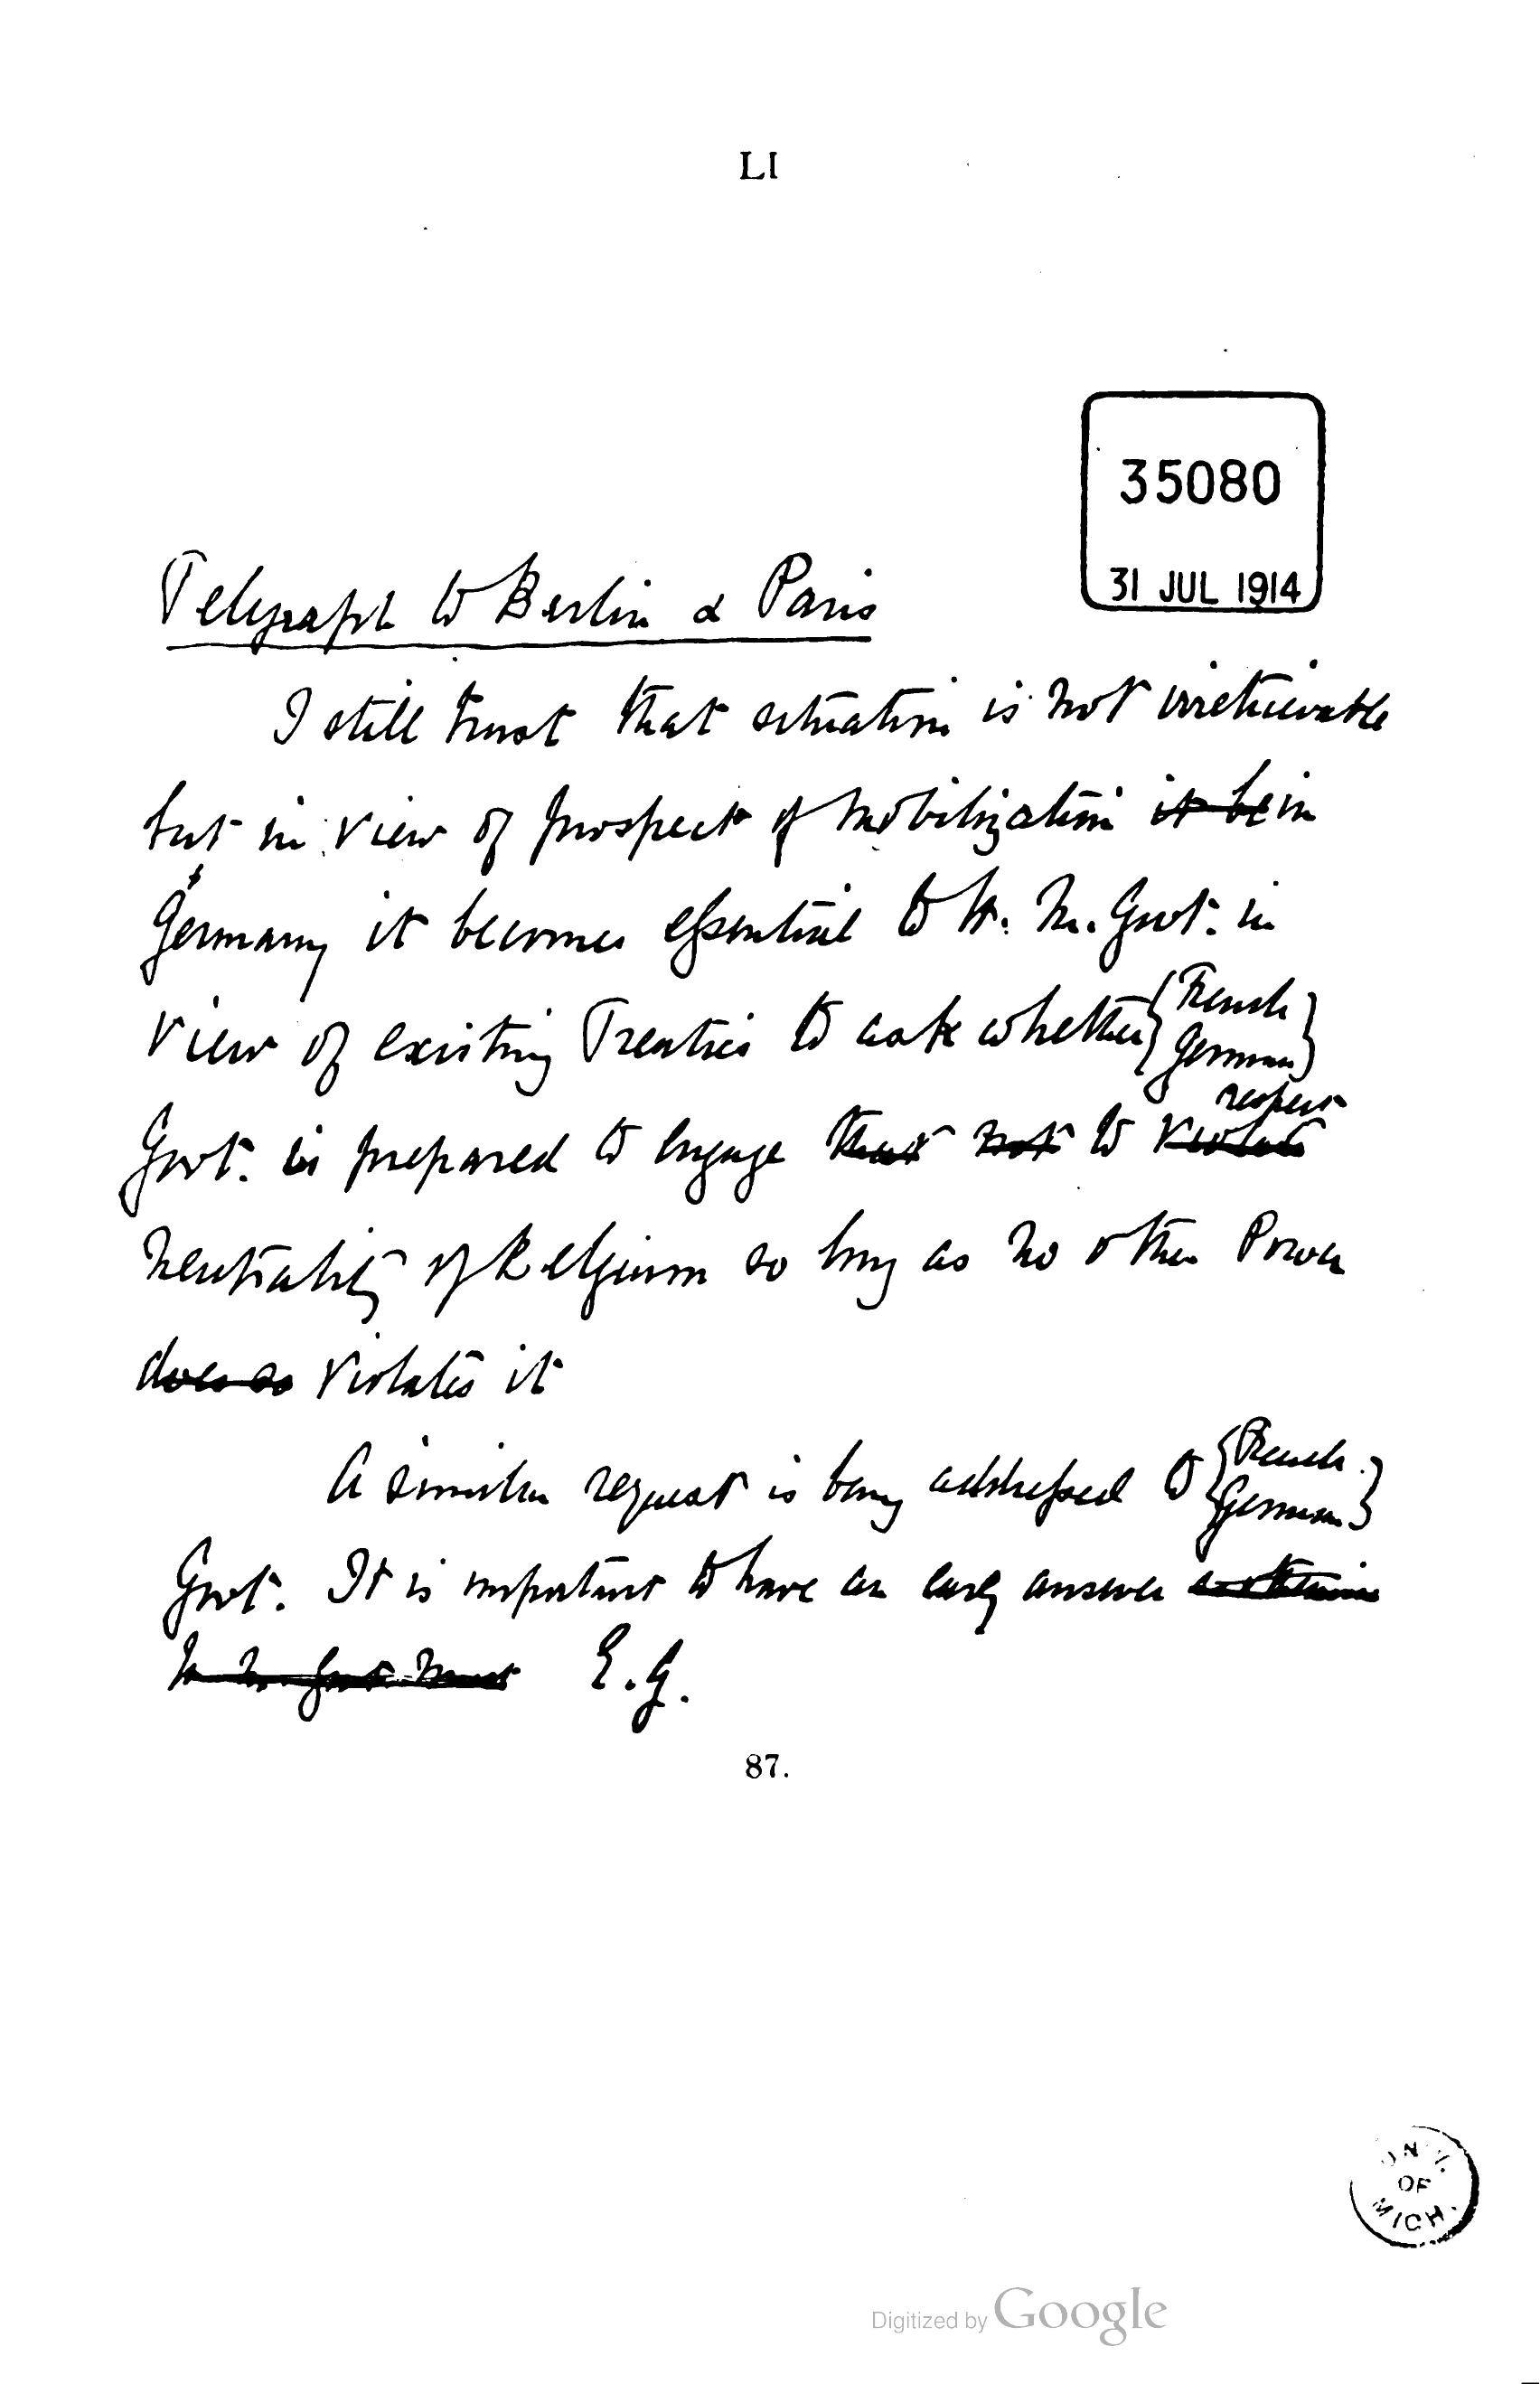 LI
35080
31 JUL 1914
Telegraph to Berlin & Paris
I still trust that situation is not irretrievable
but in view of prospect of mobilization it be in
Germany it becomes essential to H. M. Govt. in
view of existing Treaties to ask whether {French
German}
respect
Govt. is prepared to engage that not to violate
neutrality of Belgium so long as no other Power
does so violates it
A similar request is being addressed to {French
German}
Govt. It is important to have an early answer as otherwise
H. M. Govt. must E.G.
87.
UNIV.
OF
MICH.
Digitized by Google